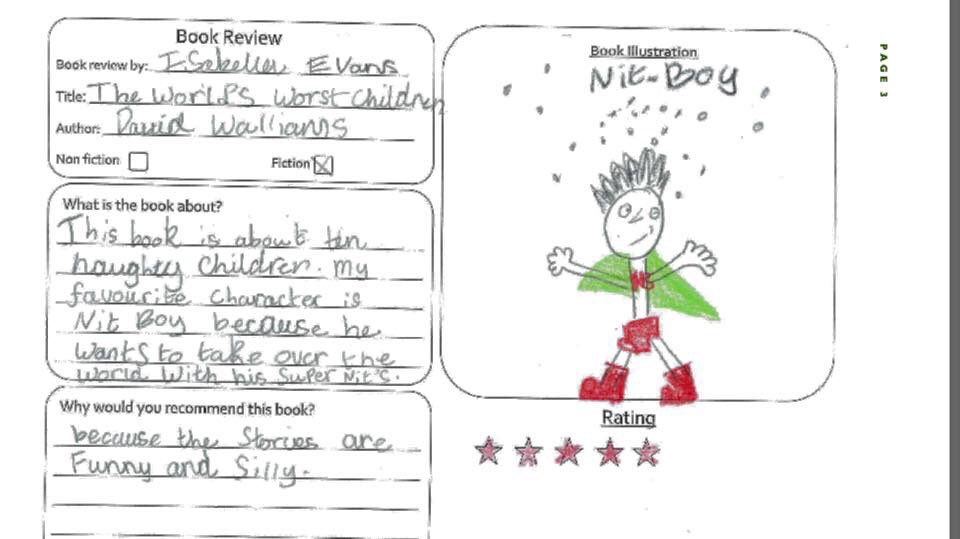 Book Review
Book review by: Isabella Evans
Title: The World's Worst Children
Author: David Walliams
Non fiction
Fiction
What is the book about?
This book is about ten
naughty children. my
favourite character is
Nit Boy because he
wants to take over the
world with his super Nit's.
Why would you recommend this book?
because the Stories are
Funny and Silly.
Book Illustration
Nit-Boy
NB
Rating
PAGE 3